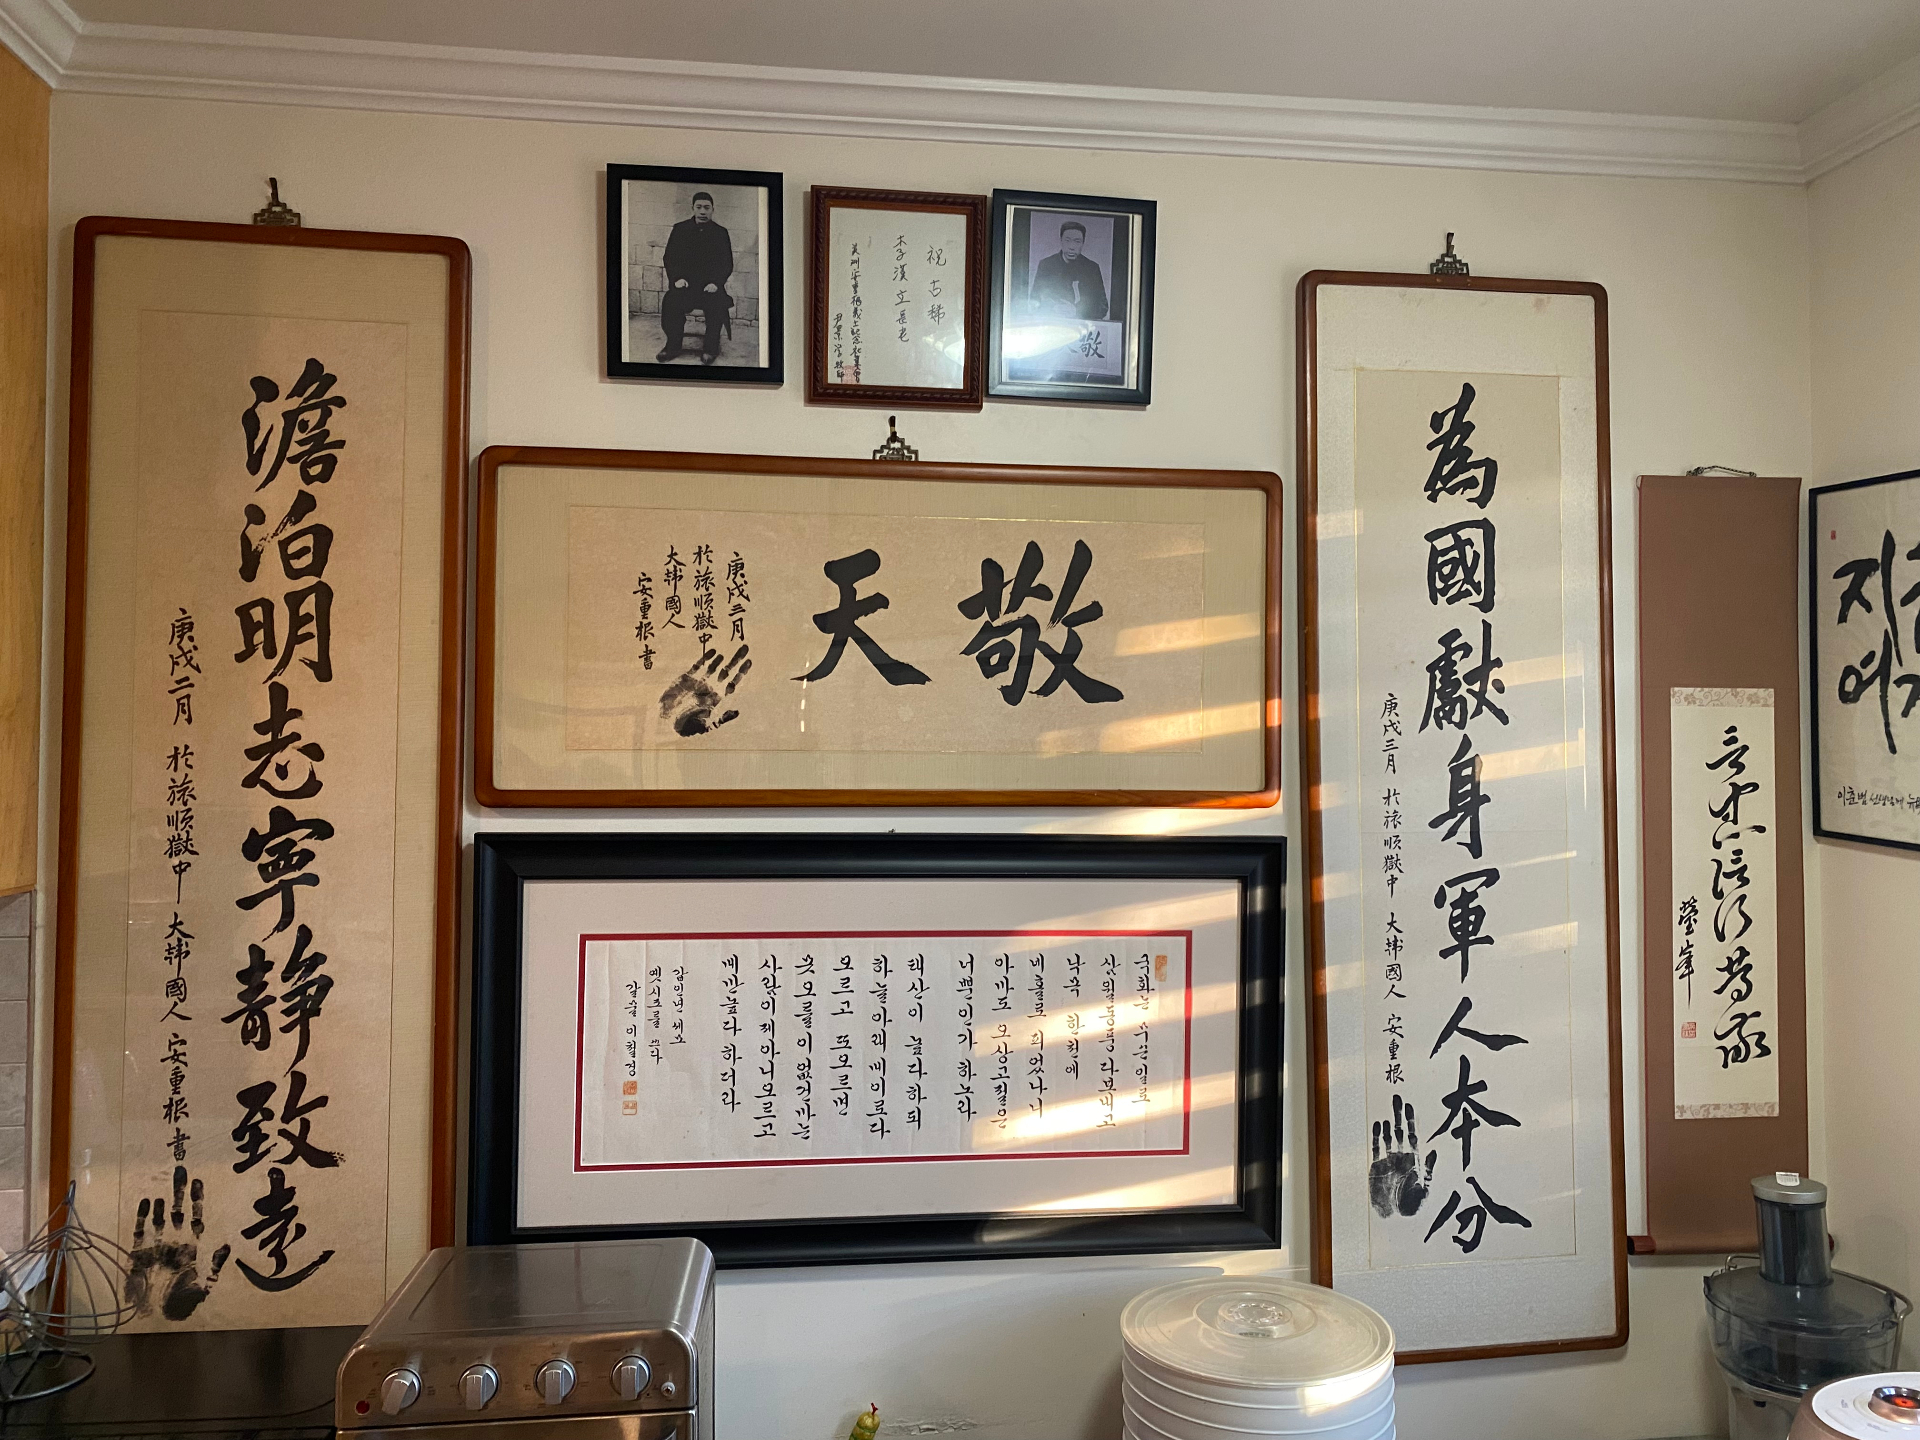 澹泊明志寧靜致遠
庚戌二月 於旅順獄中 大韓國人 安重根 書
祝 古稀
李漢立長老
敬天
敬天
庚戌三月
於旅順獄中
大韓國人
安重根 書
국화는 무슨일로
삼월동풍 다보내고
낙목 한천에
네홀로 피었나니
아마도 오상고절은
너뿐인가 하노라
태산이 높다하되
하늘아래 메이로다
오르고 또오르면
못오를이 없건마는
사람이제아니오르고
메만높다 하더라
갑인년 세모
옛시조를 쓰다
갈물 이철경
為國獻身軍人本分
庚戌三月 於旅順獄中 大韓國人 安重根
言忠信行篤敬
瑩峯
지
여
이춘범 선생님께